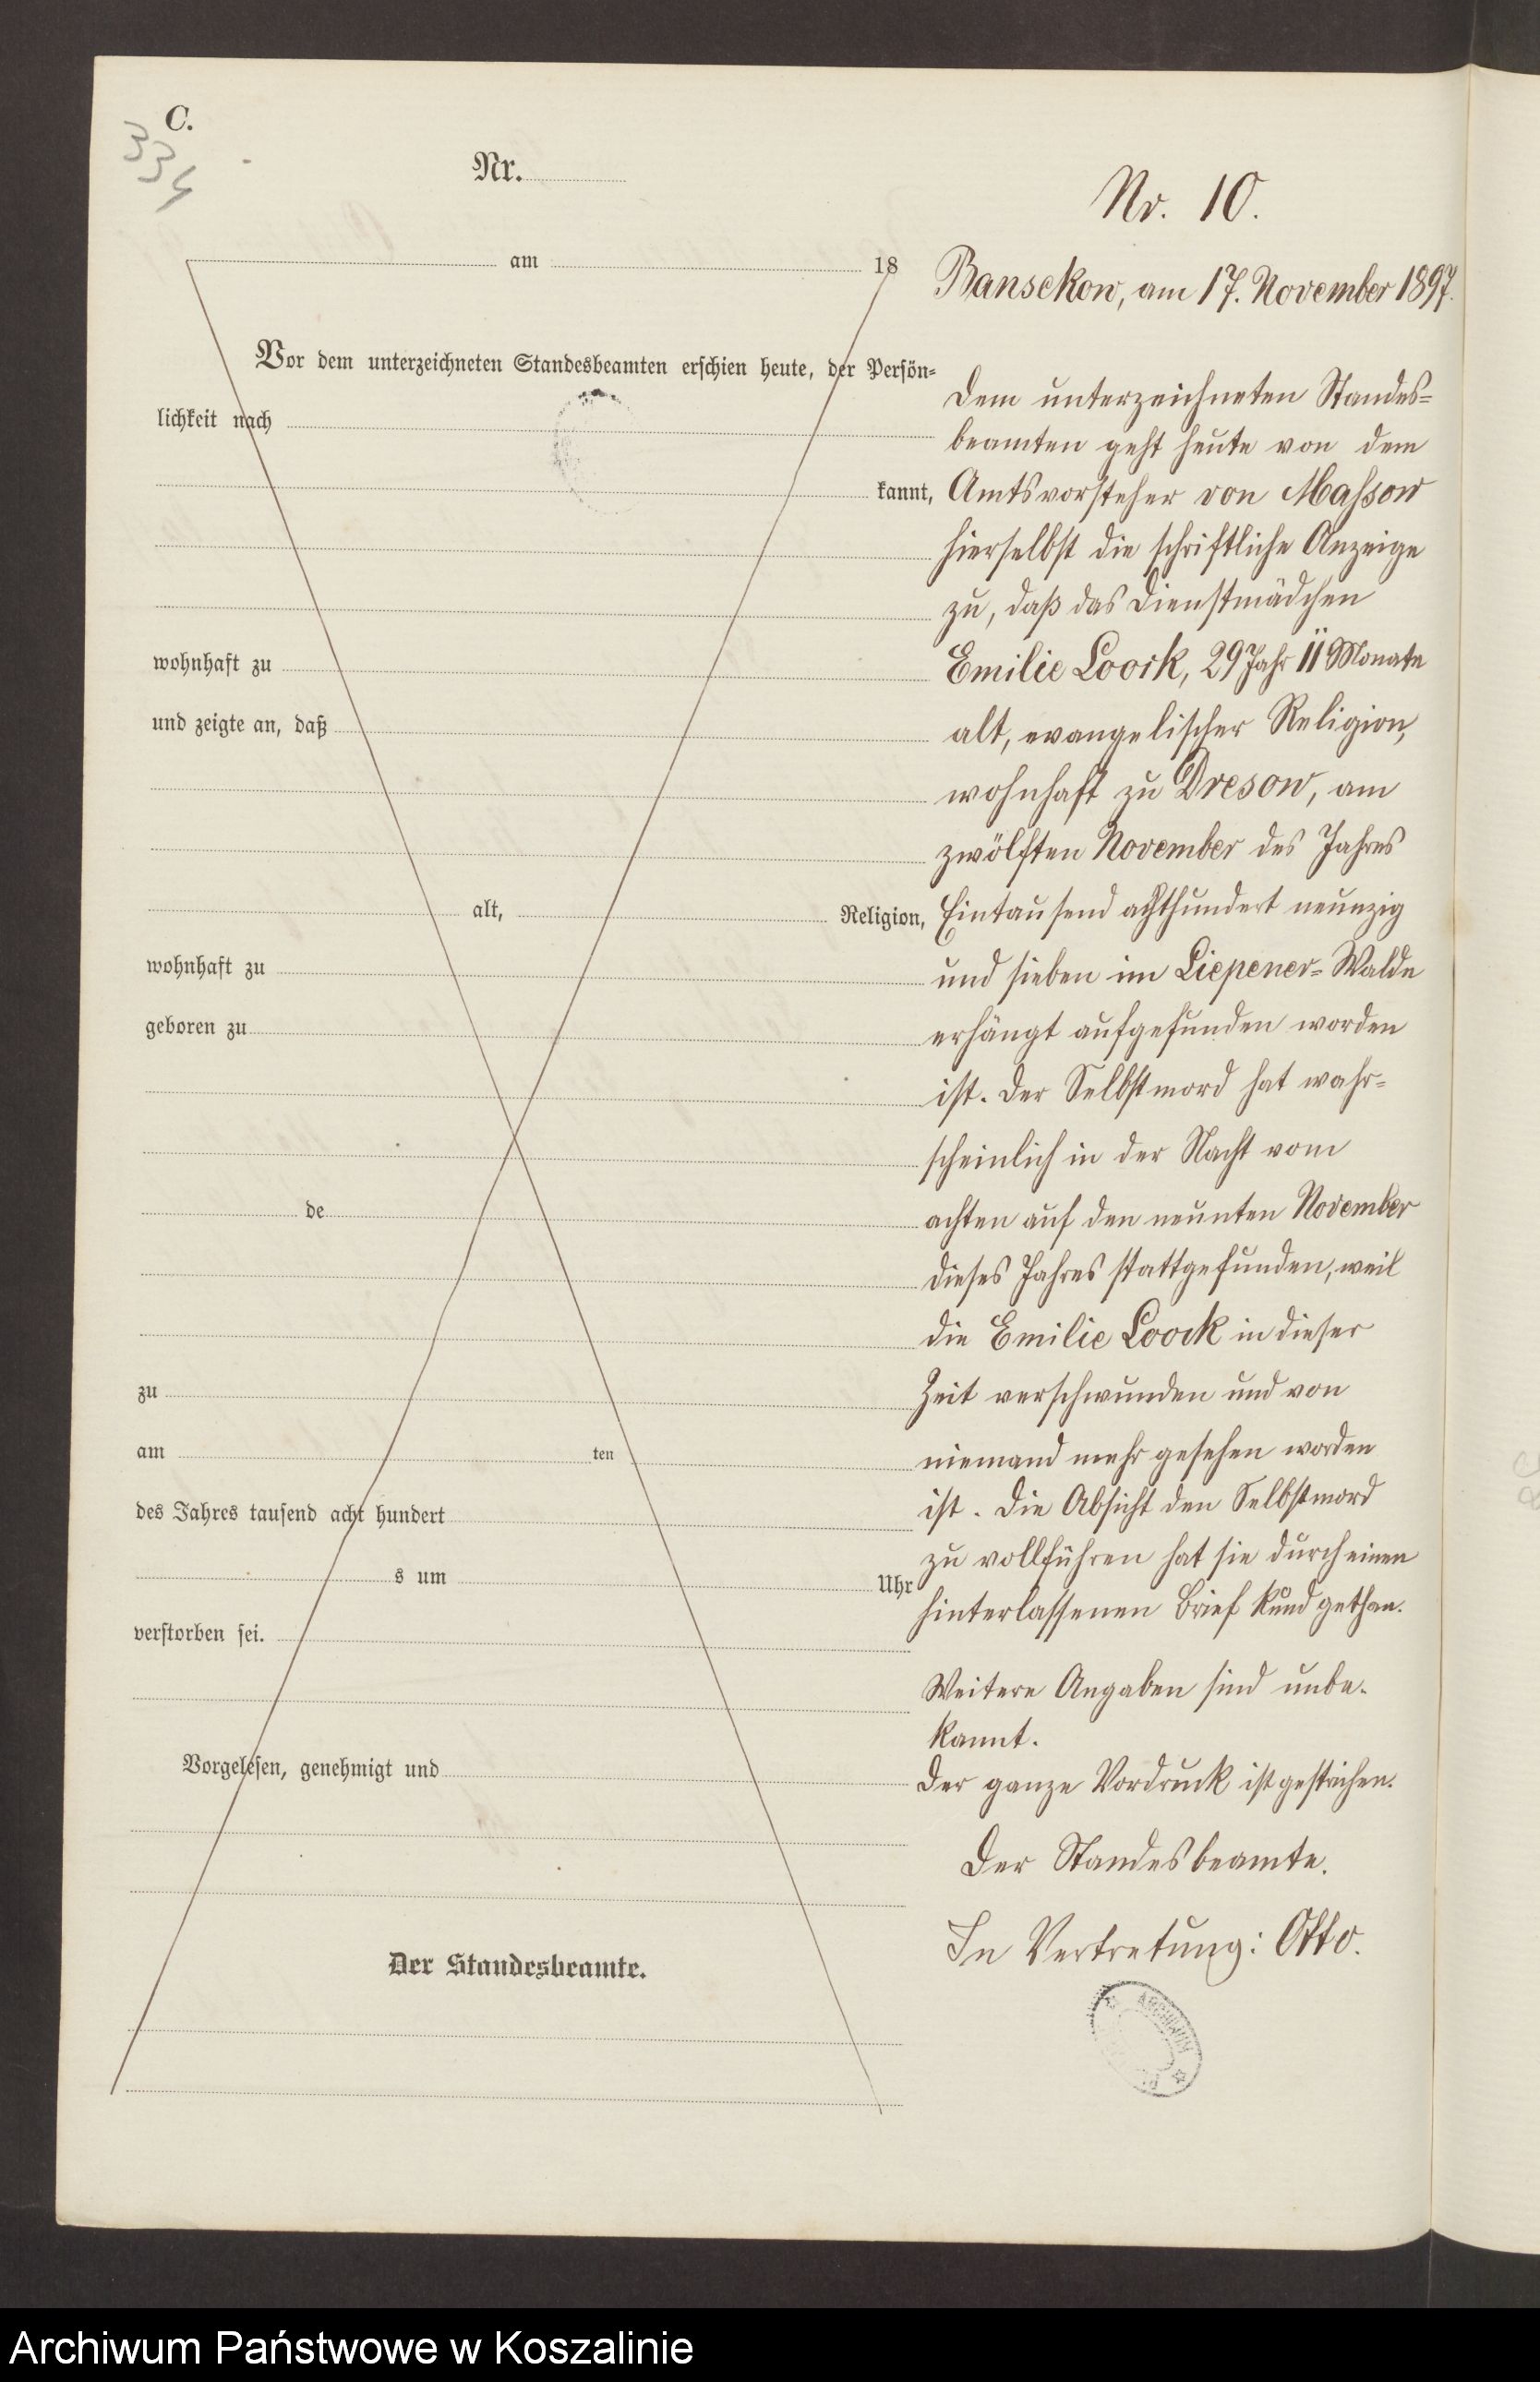 C.
334
Nr.
am 18
Vor dem unterzeichneten Standesbeamten erschien heute, der Persön-
lichkeit nach
kannt,
wohnhaft zu
und zeigte an, daß
alt, Religion,
wohnhaft zu
geboren zu
de
zu
am ten
des Jahres tausend acht hundert
s um Uhr
verstorben sei.
Vorgelesen, genehmigt und
Der Standesbeamte.
Nr. 10.
Bansekow, am 17. November 1897.
Dem unterzeichneten Standes=
beamten geht heute von dem
Amtsvorsteher von Massow
hierselbst die schriftliche Anzeige
zu, daß das Dienstmädchen
Emilie Loock, 29 Jahr 11 Monate
alt, evangelischer Religion,
wohnhaft zu Dresow, am
zwölften November des Jahres
Eintausend achthundert neunzig
und sieben im Liepener=Walde
erhängt aufgefunden worden
ist. Der Selbstmord hat wahr=
scheinlich in der Nacht vom
achten auf den neunten November
dieses Jahres stattgefunden, weil
die Emilie Loock in dieser
Zeit verschwunden und von
niemand mehr gesehen worden
ist. Die Absicht den Selbstmord
zu vollführen hat sie durch einen
hinterlassenen Brief kund gethan.
Weitere Angaben sind unbe-
kannt.
Der ganze Vordruck ist gestrichen.
Der Standesbeamte.
In Vertretung: Otto.
ARCHIWUM
Archiwum Państwowe w Koszalinie